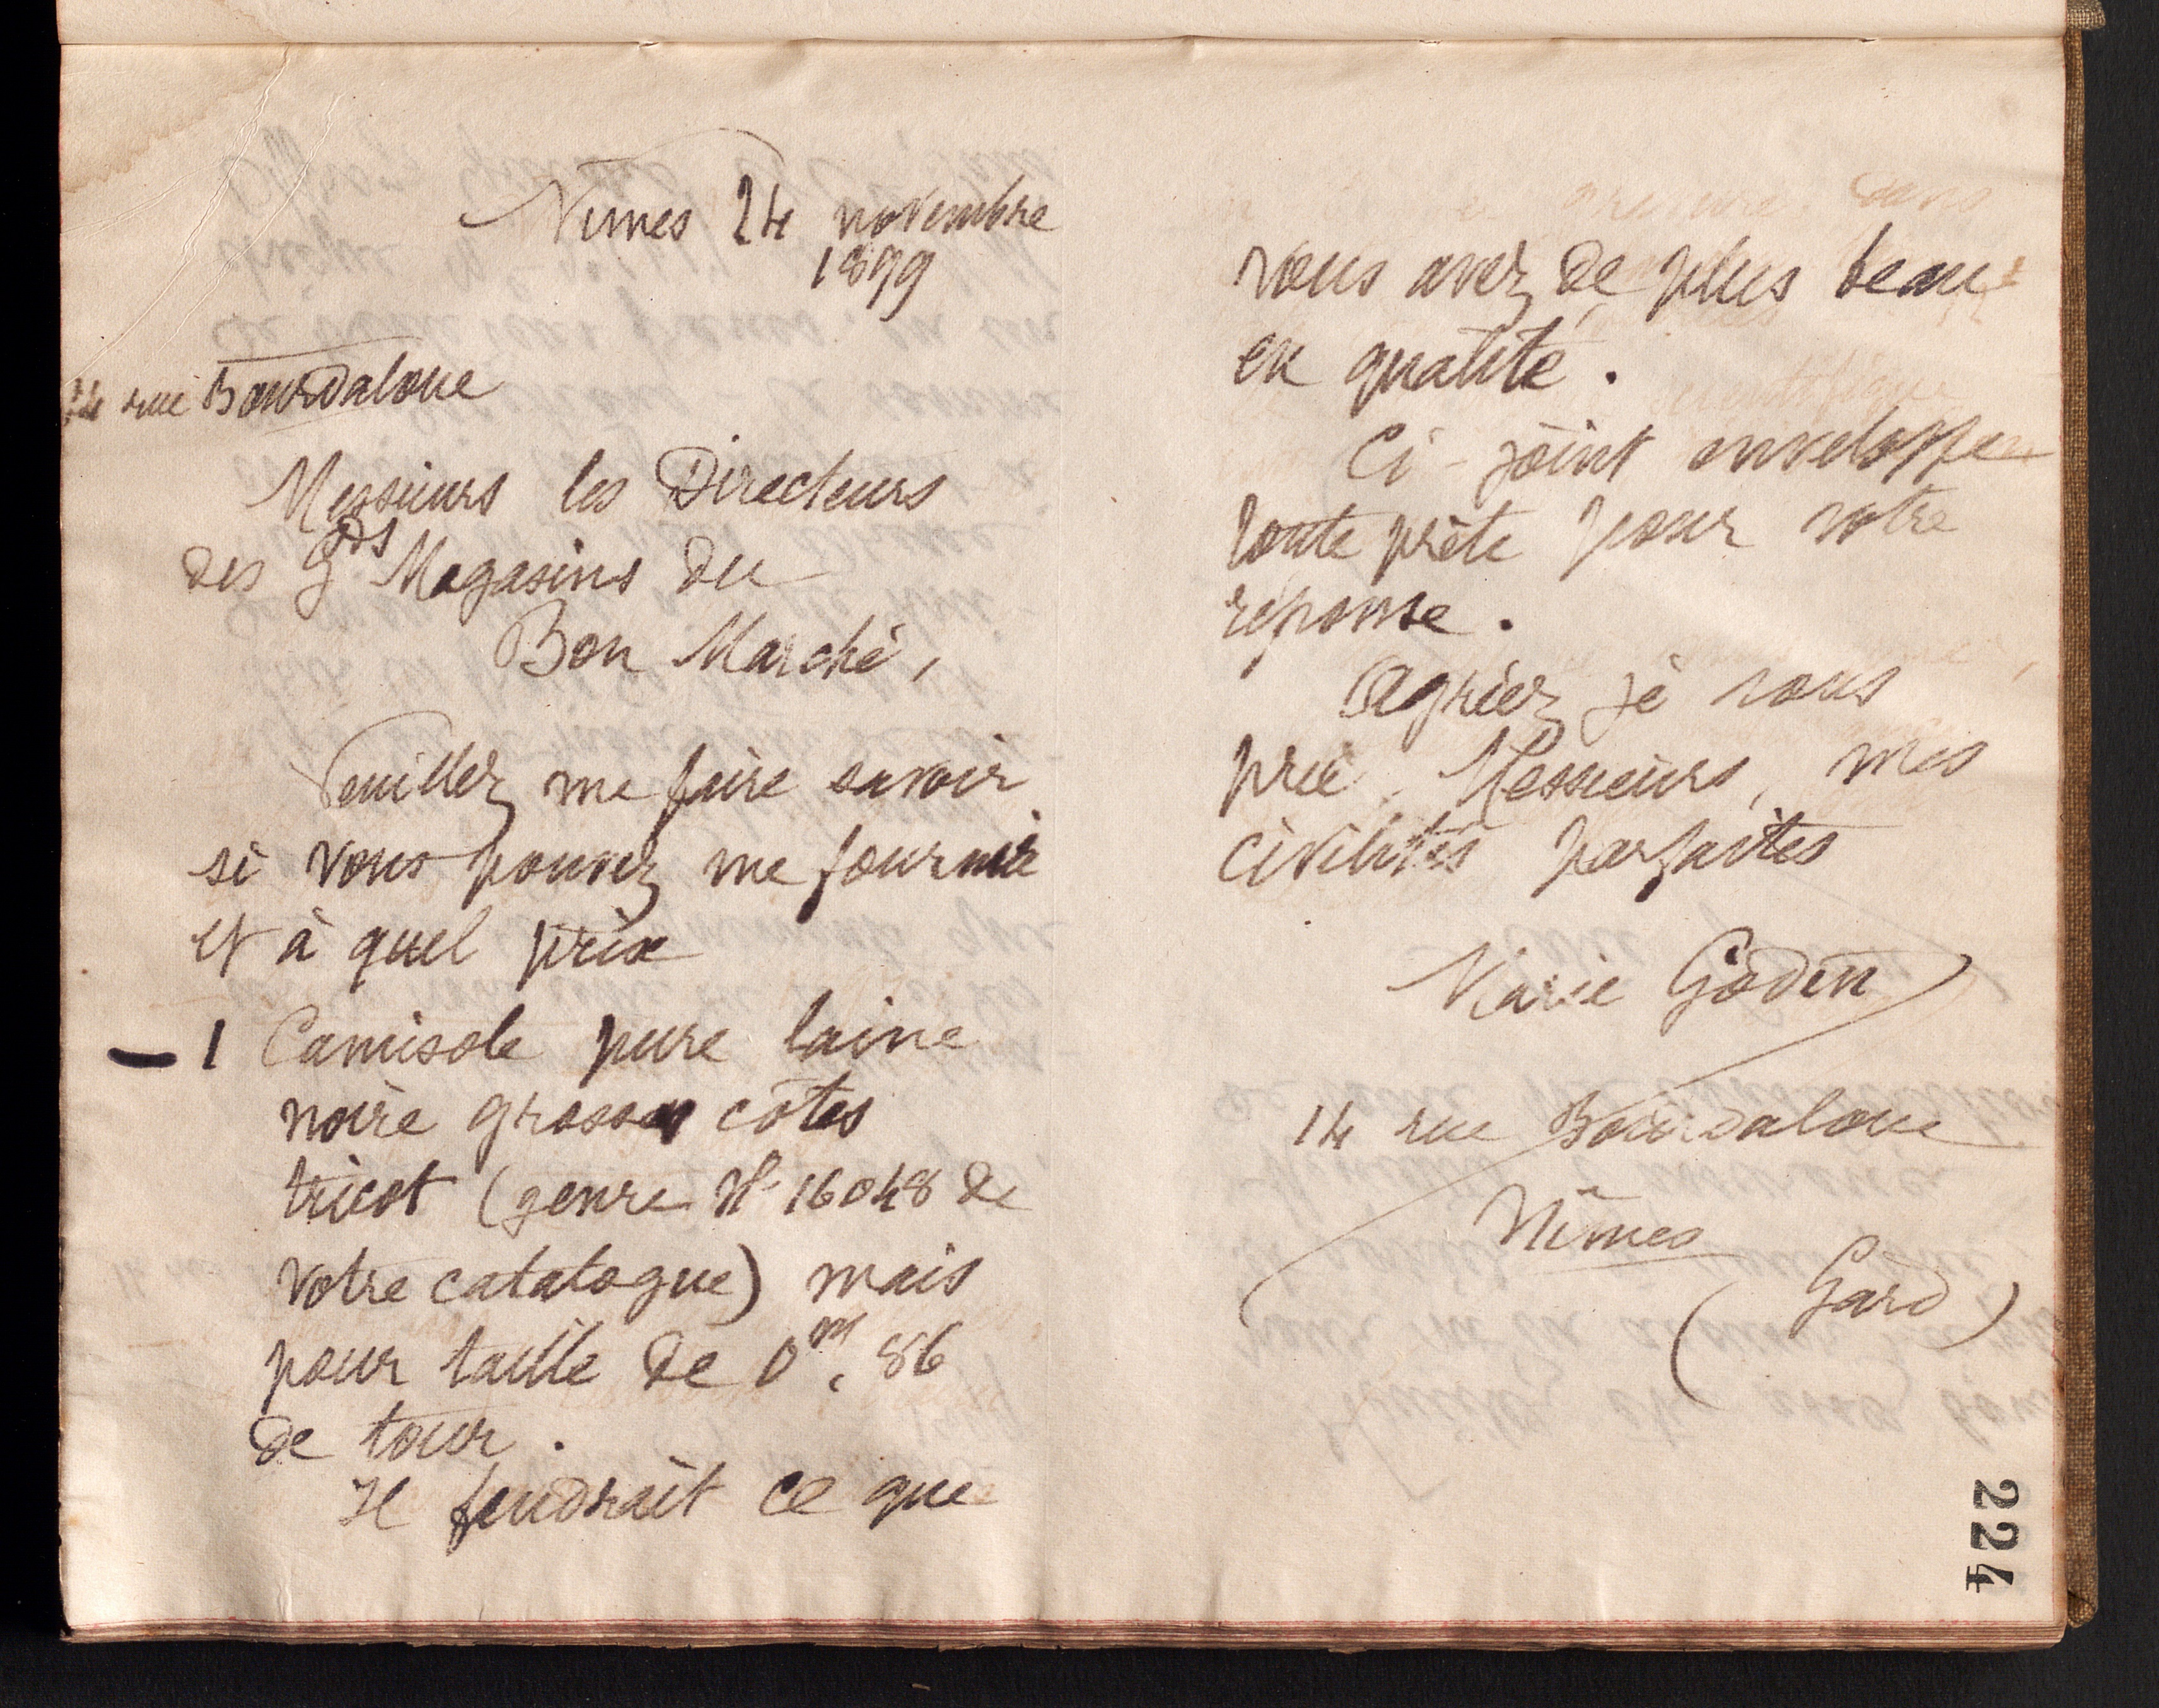 Nimes 24 novembre
1899
14 rue Bourdaloue
Messieurs les Directeurs
des Gds Magasins du
Bon Marché,
Veuillez me faire savoir
si vous pouvez me fournir
et à quel prix
1 Camisole pure laine
noire grosses côtes
tricot (genre N° 16048 de
votre catalogue) mais
pour taille de 0m, 86
de tour.
Il faudrait ce que
vous avez de plus beau
en qualité.
Ci-joint enveloppe
toute prête pour votre
réponse.
Agréez je vous
prie, Messieurs, mes
civilités parfaites
Marie Godin
14 rue Bourdaloue
Nîmes
(Gard)
224